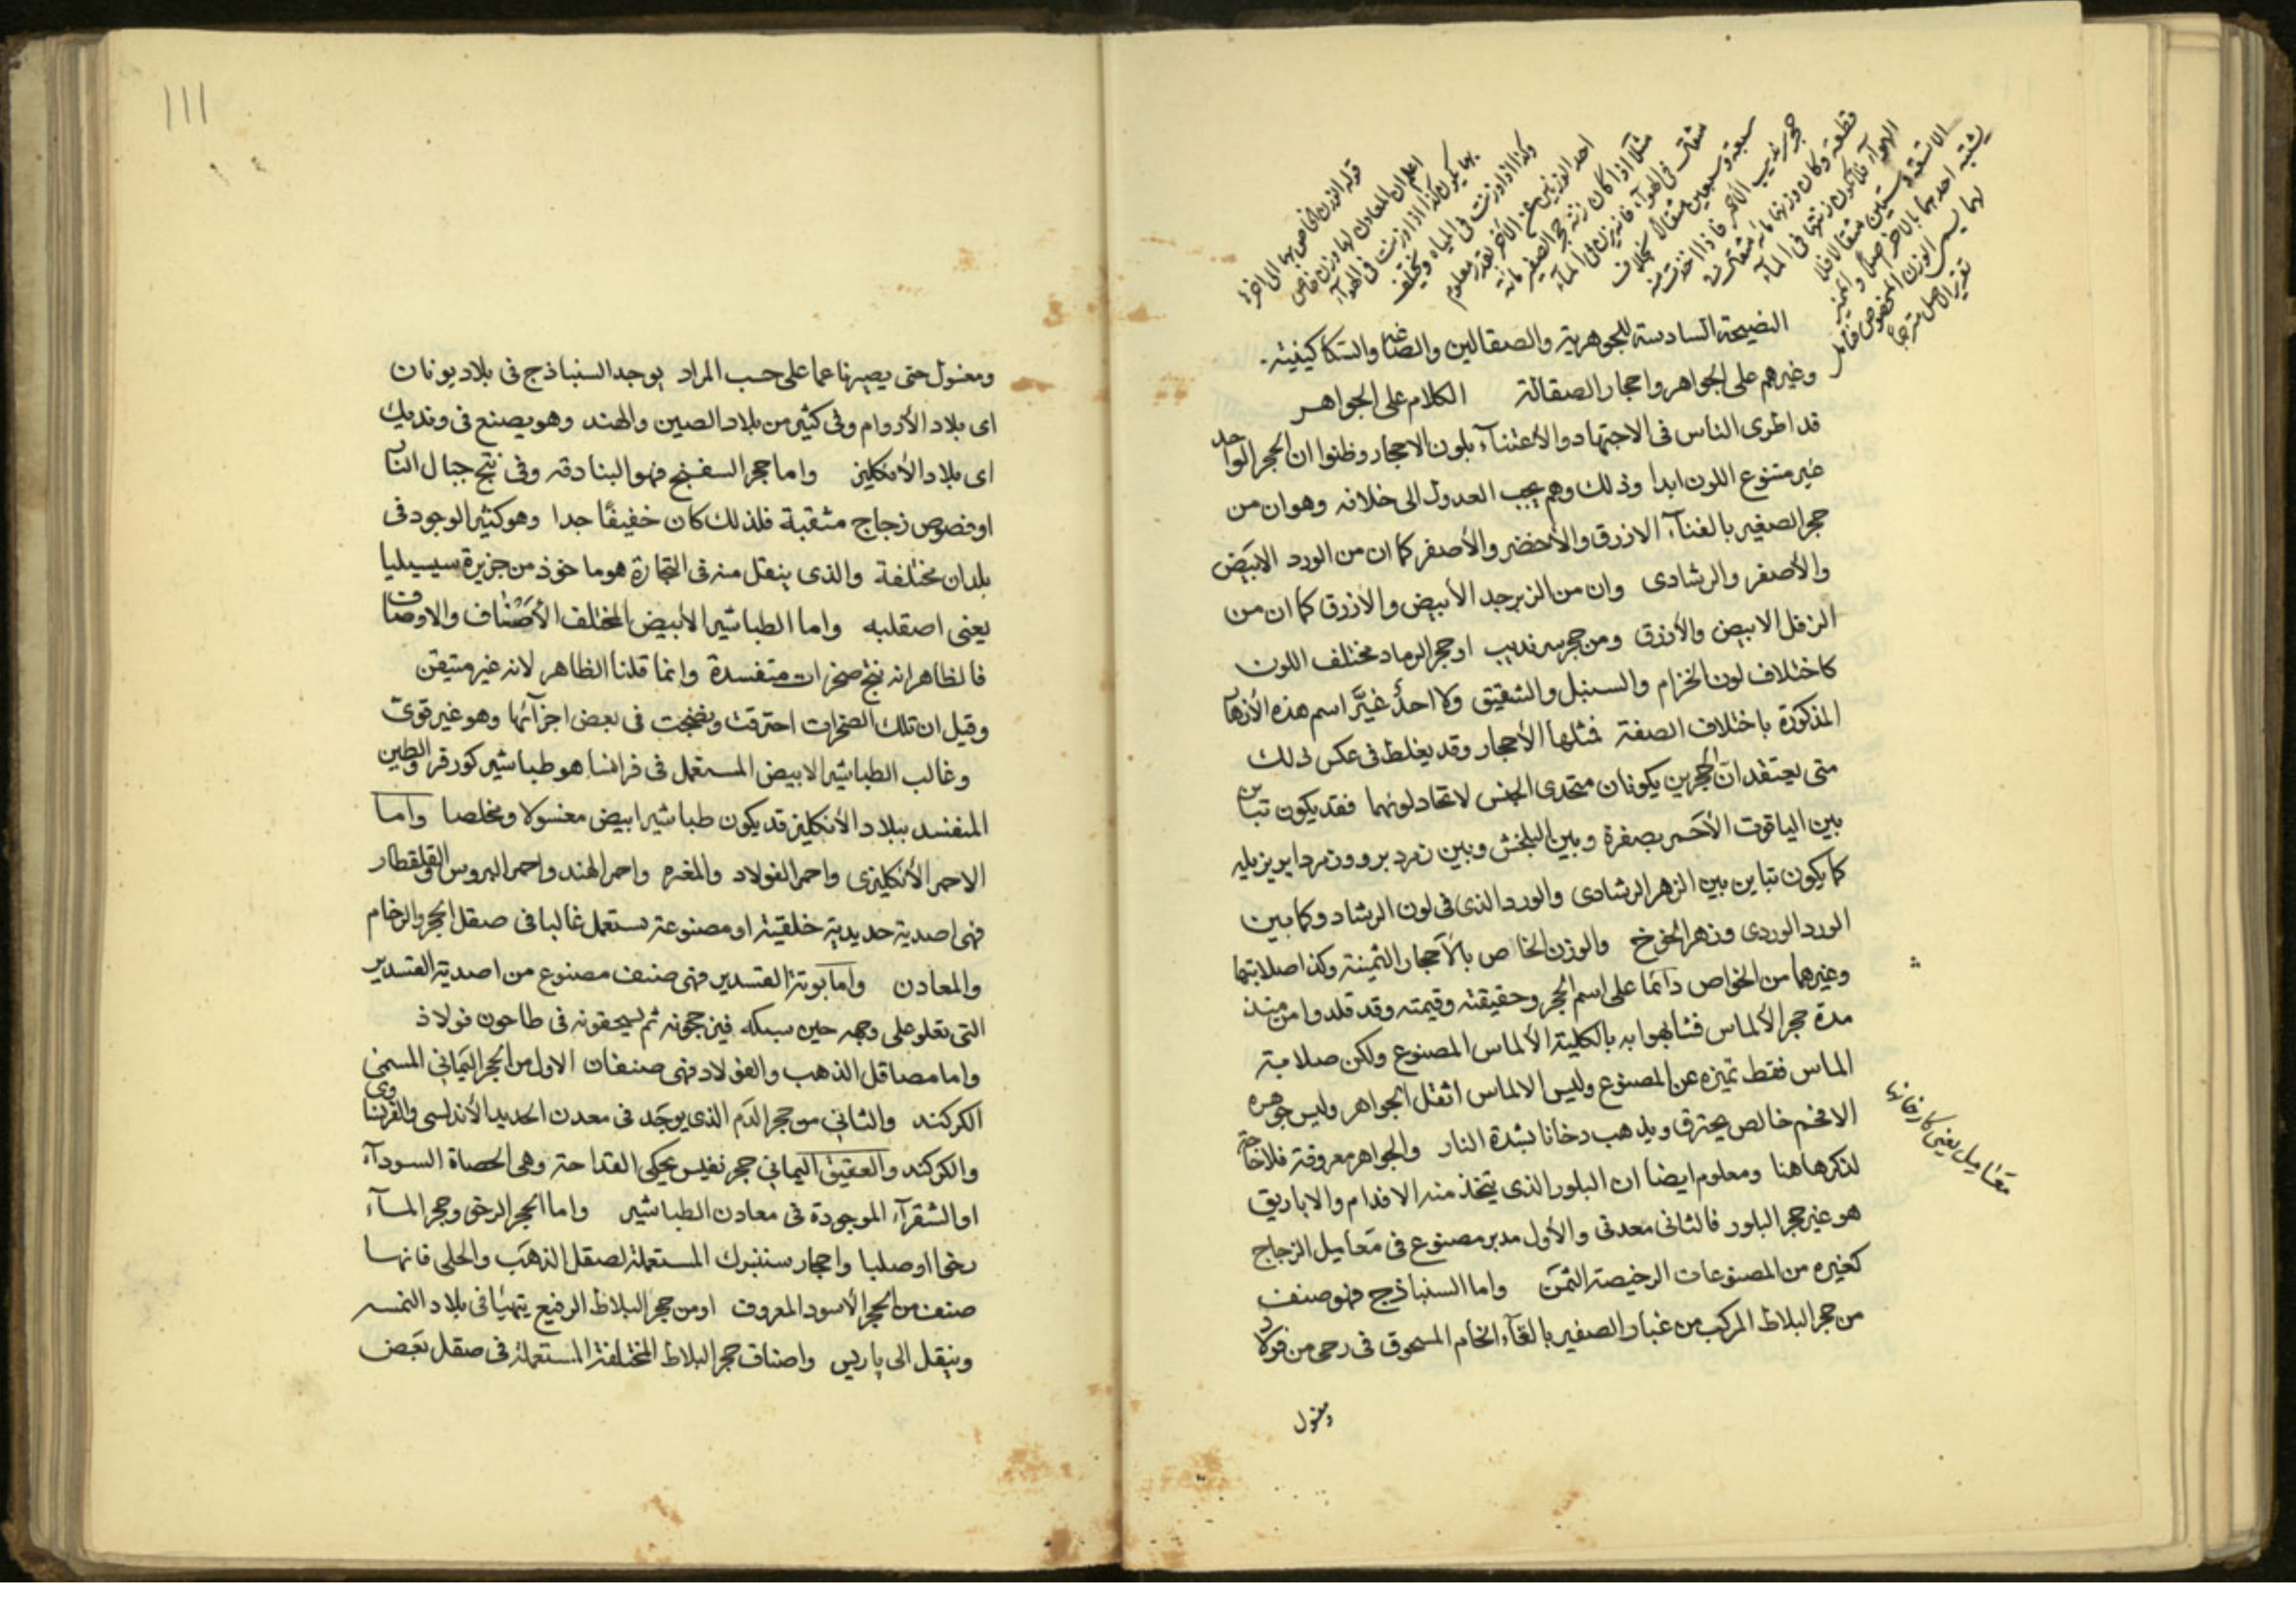 قوله الوزن الخاص بها الى اخره
اعلم ان المعادن لها وزن خاص
بها يكون كذا اذا وزنت فى الهوآء
وكذا اذا وزنت فى المياه ويختلف
احد الوزنين عن الاخر بقدر معلوم
مثلا اذا كان زنة حجر الصفير مائة
مثقال فى الهوآء فانه يزن فى المآء
سبعة وسبعين مثقالا بخلاف
حجر سرنديب الاحمر فاذا اخذت منه
قطعة وكان وزنها مائة مثقال فى
الهوآء فلا تكون زنتها فى المآء
الا تسعة وستين مثقالا فلا
يشتبه احدهما بالاخر اصلا والمميز
لهما يسمى الوزن المخصوص فتامل
تقرير الاصل مترجما
النصيحة السادسة للجوهرية والصقالين والصاغة والستكاكيفية
وغيرهم على الجواهر واحجار الصقالة الكلام على الجواهر
قد اطرى الناس فى الاجتهاد والأعتنآء بلون الاحجار وظنوا ان الحجر الواحد
غير متنوع اللون ابدا وذلك وهم يجب العدول الى خلافه وهو ان من
حجر الصفير بالفآء الازرق والأخضر والأصفر كما ان من الورد الابيض
والأصفر والرشادى وان من الزبرجد الأبيض والأزرق كما ان من
الزفل الابيض والأزرق ومن حجر سرنديب او حجر الرماد مختلف اللون
كاختلاف لون الخزام والسنبل والشقيق ولا احد غيّر اسم هذه الأزهار
المذكورة باختلاف الصفة فمثلها الأحجار وقد يغلط فى عكس ذلك
متى يعتقد ان الحجرين يكونان متحدى الجنس لاتحاد لونهما فقد يكون تباين
بين الياقوت الأحمر بصفرة وبين البلخش وبين زمرد برو وزمرد ايريزيليه
كما يكون تباين بين الزهر الرشادى والورد الذى فى لون الرشاد وكما بين
الورد الوردى وزهر الخوخ والوزن الخاص بالأحجار الثمينة وكذا صلابتها
وغيرهما من الخواص دائما على اسم الحجر وحقيقته وقيمته وقد قلدوا من منذ
مدة حجر الألماس فشابهوا به بالكلية الألماس المصنوع ولكن صلابة
الماس فقط تميزه عن المصنوع وليس الالماس اثقل الجواهر وليس جوهره
الا فحم خالص يحترق ويذهب دخانا بشدة النار والجواهر معروفة فلا حاجة
لذكرها هنا ومعلوم ايضا ان البلور الذى يتخذ منه الاقدام والاباريق
هو غير حجر البلور فالثانى معدنى والأول مدبر مصنوع فى معاميل الزجاج
كغيره من المصنوعات الرخيصة الثمن واما السنباذج فهو صنف
من حجر البلاط المركب من غبار الصفير بالفآء الخام المسحوق فى رحى من فولاذ
معاميل يعنى كارخانه
ومغسول
١١١
ومغسول حتى يصير ناعما على حسب المراد يوجد السنباذج فى بلاد يونان
اى بلاد الأروام وفى كثير من بلاد الصين والهند وهو يصنع فى وندريك
اى بلاد الأنكليز واما حجر السفنج فهو البنادقه وفى نتج جبال النار
او فصوص زجاج مثقبة فلذلك كان خفيفا جدا وهو كثير الوجود فى
بلدان مختلفة والذى ينقل منه فى التجارة هو ماخوذ من جزيرة سيسيليا
يعنى اصقليه واما الطباشير الأبيض المختلف الأصناف والاوصاف
فالظاهر انه نتج صخرات متفسدة وانما قلنا الظاهر لانه غير متيقن
وقيل ان تلك الصخرات احترقت ونضجت فى بعض اجزآئها وهو غير قوى
وغالب الطباشير الابيض المستعمل فى فرانسا هو طباشير كورقر والطين
المنفسد ببلاد الأنكليز قد يكون طباشيرا بيض مغسولا ومخلصا واما
الاحمر الأنكليزى واحمر الفولاد والمغره واحمر الهند واحمر البروس والقلقطار
فهى اصدية حديدية خلقية او مصنوعة تستعمل غالبا فى صقل الحجر والرخام
والمعادن واما بوتة القسدير فهى صنف مصنوع من اصدية القسدير
التى تعلو على وجهه حين سبكه فيزججونه ثم يسحقونه فى طاحون فولاذ
واما مصاقل الذهب والفولاد فهى صنفان الاول من الحجر اليمانى المسمى
الكركند والثانى من حجر الدم الذى يوجد فى معدن الحديد الأندلسى والفرنساوى
والكركند والعقيق اليمانى حجر نفيس يحكى القداحة وهى الحصاة السودآء
او الشقرآء الموجودة فى معادن الطباشير واما الحجر الرخى وحجر المآء
رخى او صلبا واحجار سنتبرك المستعملة لصقل الذهب والحلى فانها
صنف من الحجر الأسود المعروف او من حجر البلاط الرفيع يتهيا فى بلاد النمسه
وينقل الى پاريس واصناف حجر البلاط المختلفة المستعملة فى صقل بعض